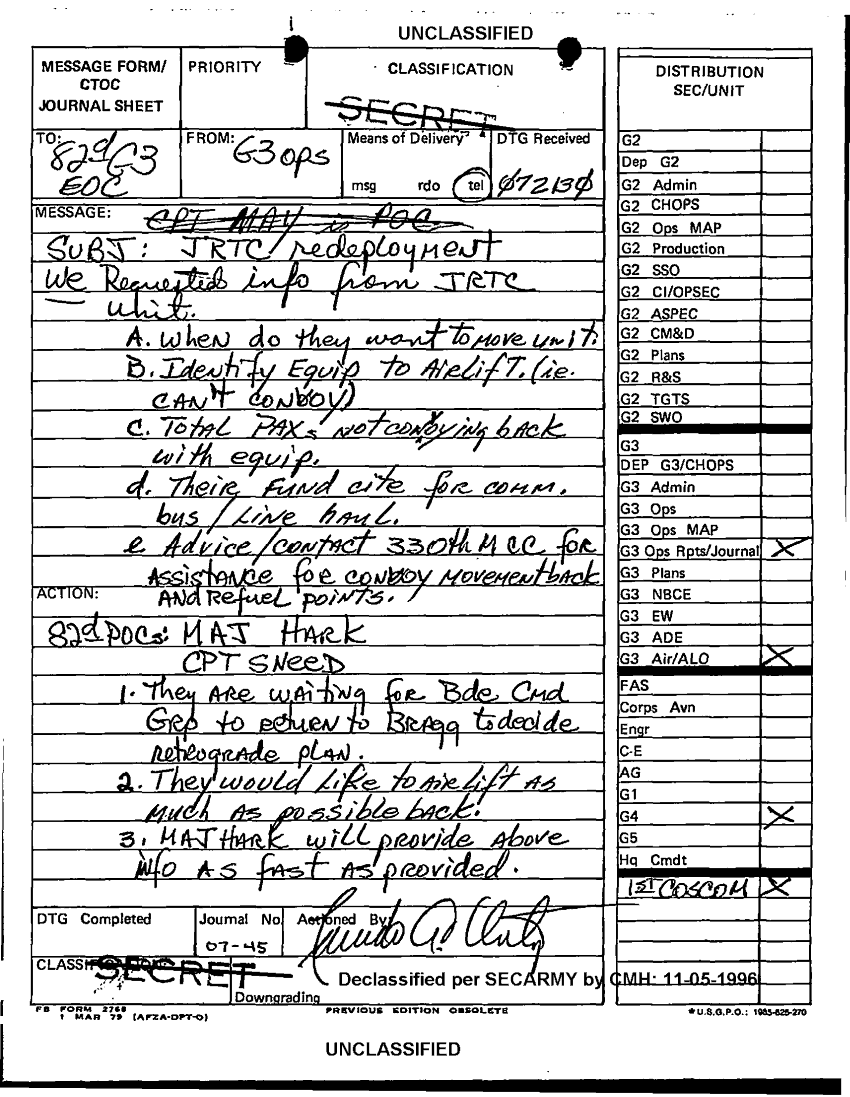 UNCLASSIFIED
MESSAGE FORM/
CTOC
JOURNAL SHEET
PRIORITY
CLASSIFICATION
SECRET
TO:
82d G3
EOC
FROM:
G3 OPS
Means of Delivery
msg rdo tel
DTG Received
072130
MESSAGE: CPT MAY is POC
SUBJ: JRTC/redeployment
We Requested info from JRTC
unit.
A. When do they want to move unit.
B. Identify Equip to Airlift. (ie.
CAN't CONVOY)
C. Total PAXs not convoying back
with equip.
d. Their Fund cite for comm.
bus/Line haul.
e Advice/contact 330th MCC for
Assistance for convoy movement back
ACTION: And Refuel points.
82d POCs: MAJ HARK
CPT SNEED
1. They are waiting for Bde Cmd
Grp to return to Bragg to decide
retrograde plan.
2. They would like to airlift as
much as possible back.
3. MAJ HARK will provide above
info as fast as provided.
DTG Completed
Journal No.
07-45
Actioned By:
CLASSIFICATION:
SECRET
Downgrading
Declassified per SECARMY by CMH: 11-05-1996
DISTRIBUTION
SEC/UNIT
G2
Dep G2
G2 Admin
G2 CHOPS
G2 Ops MAP
G2 Production
G2 SSO
G2 CI/OPSEC
G2 ASPEC
G2 CM&D
G2 Plans
G2 R&S
G2 TGTS
G2 SWO
G3
DEP G3/CHOPS
G3 Admin
G3 Ops
G3 Ops MAP
G3 Ops Rpts/Journal X
G3 Plans
G3 NBCE
G3 EW
G3 ADE
G3 Air/ALO X
FAS
Corps Avn
Engr
C-E
AG
G1
G4 X
G5
Hq Cmdt
1ST COSCOM X
FB FORM 2768
1 MAR 79 (AFZA-DPT-O)
PREVIOUS EDITION OBSOLETE
*U.S.G.P.O.: 1985-625-270
UNCLASSIFIED